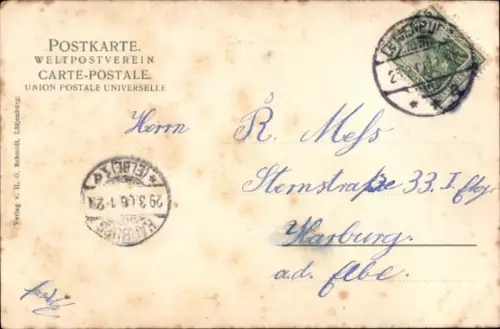 POSTKARTE.
WELTPOSTVEREIN
CARTE-POSTALE.
UNION POSTALE UNIVERSELLE
Verlag v. H. O. Schmidt, Lütjenburg.
Herrn
R. Mess
Sternstraße 33. I
Harburg.
a.d. Elbe.
HARBURG
29.3.06.1-2N
(ELBE)